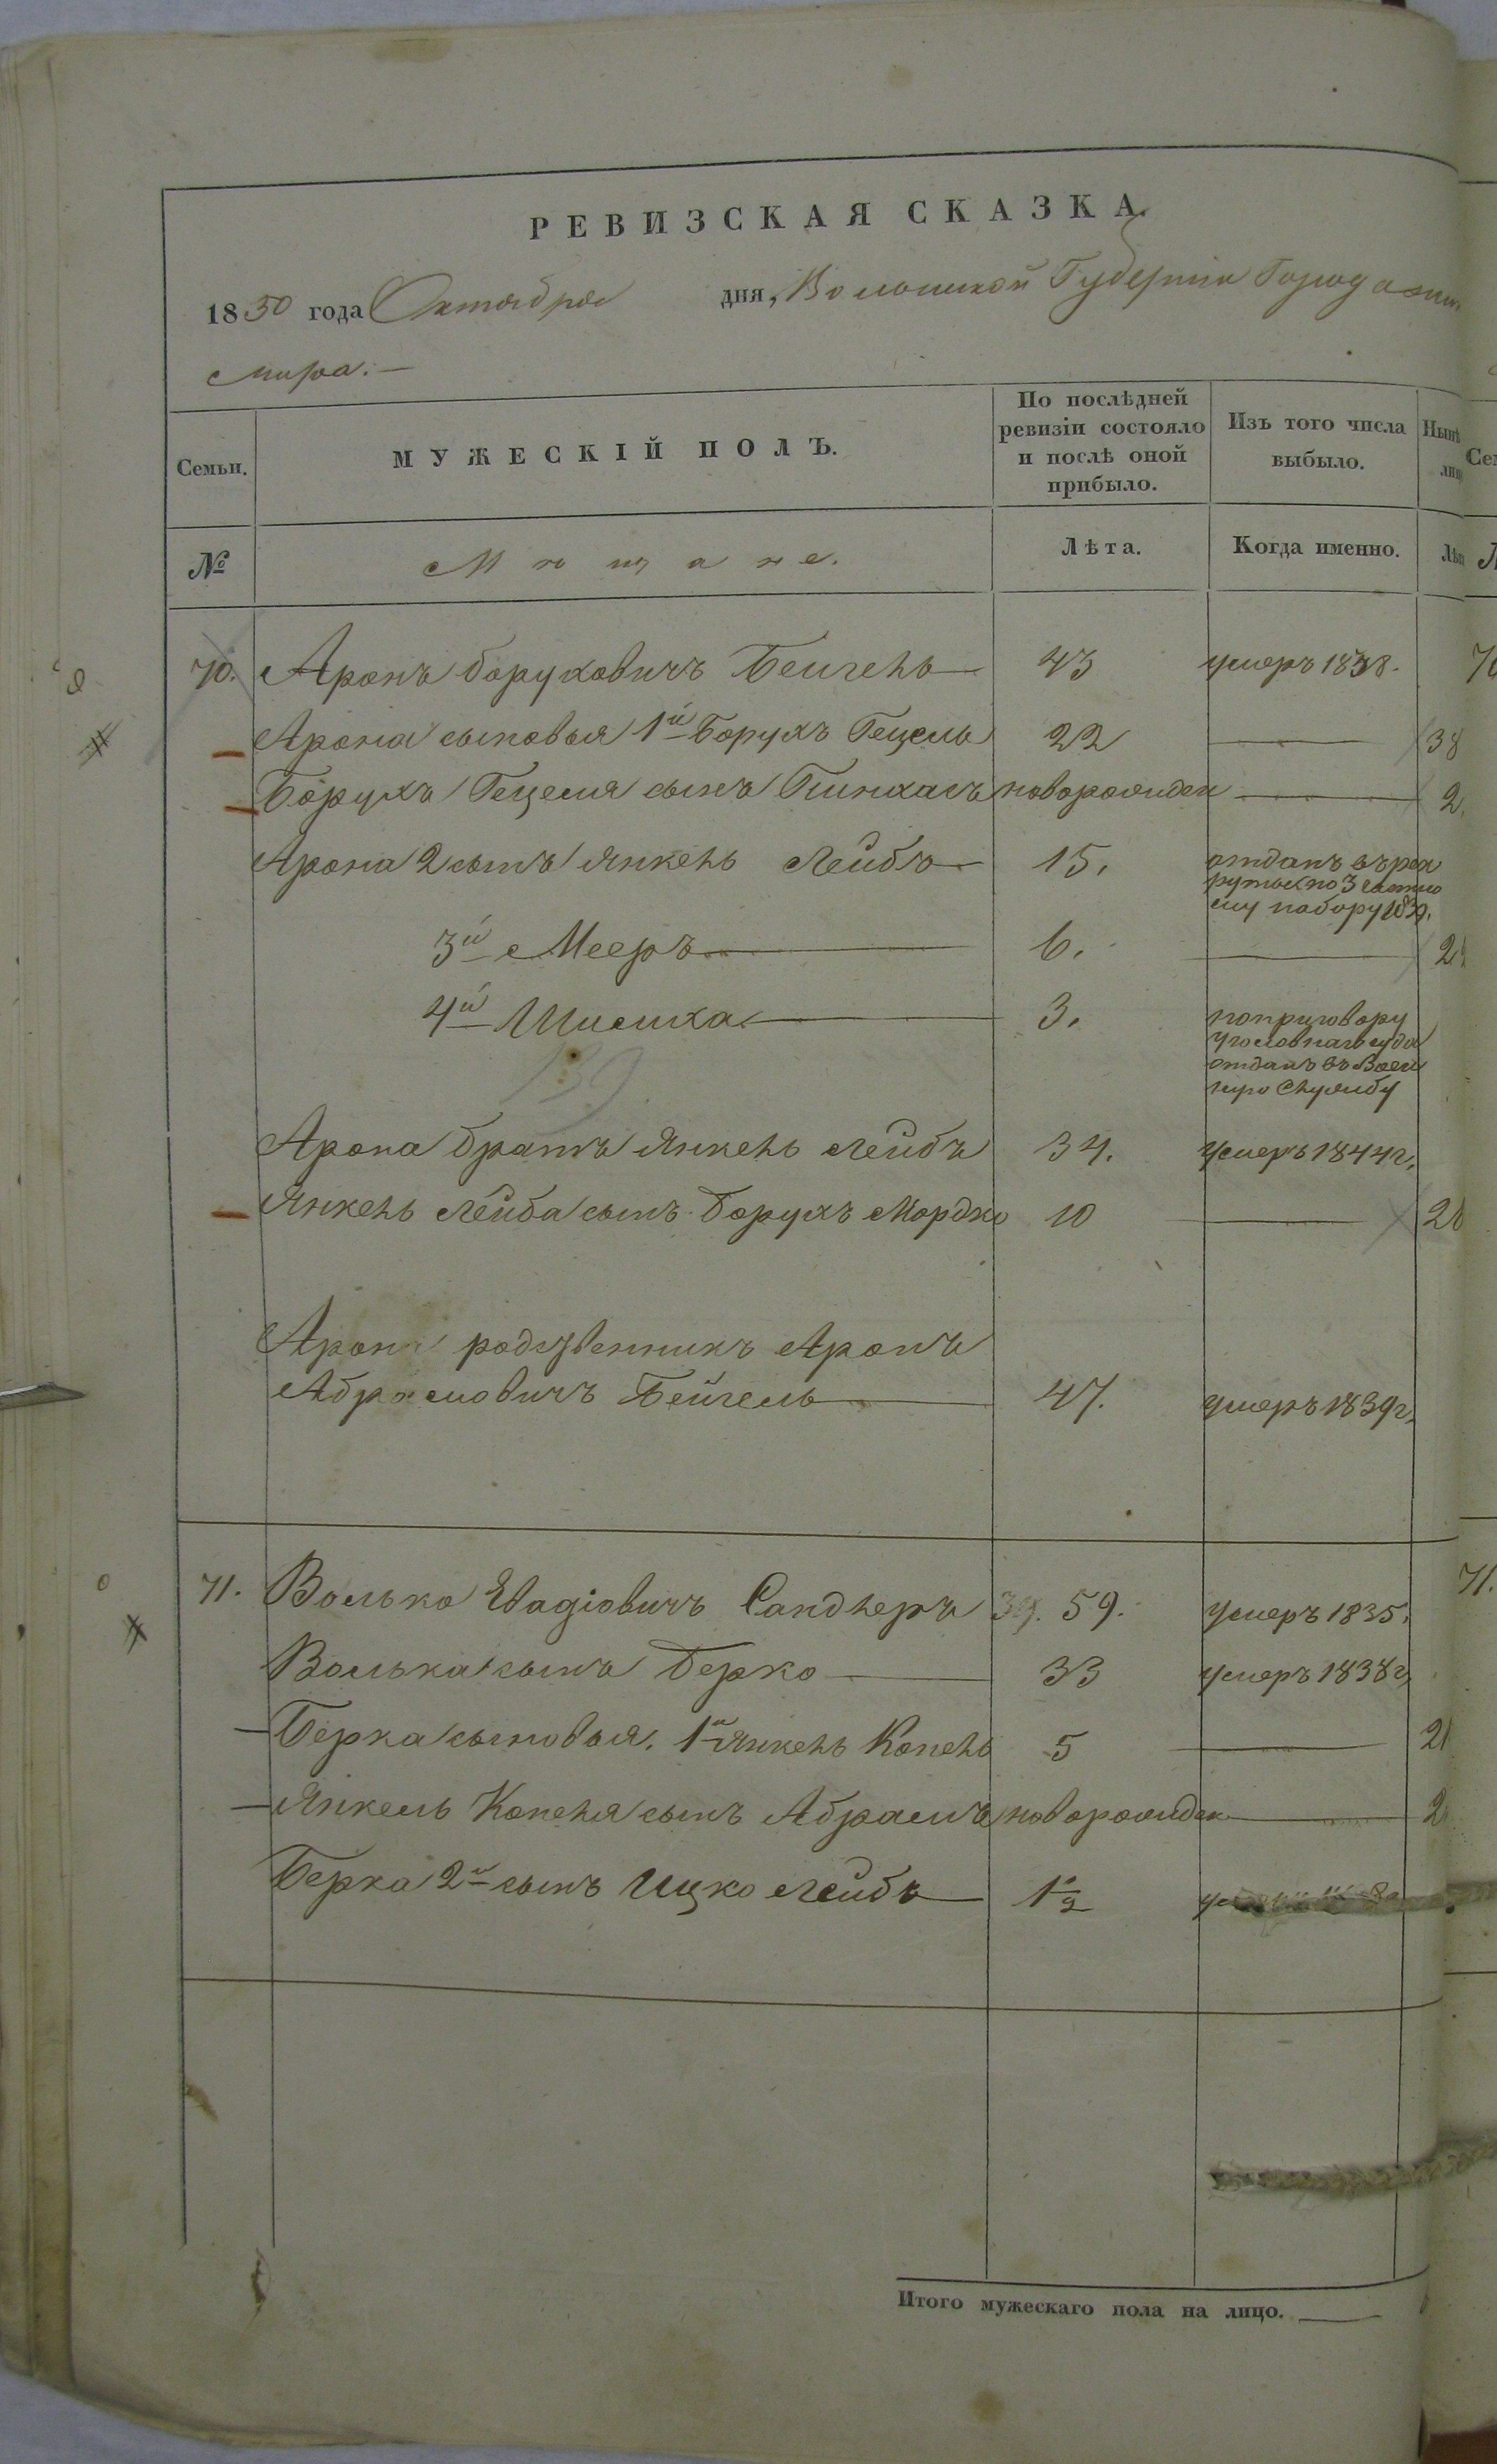 РЕВИЗСКАЯ СКАЗКА.
1850 года Октября дня, Волынской Губернiи Города
мира.—
Семьи. МУЖЕСКІЙ ПОЛЪ. По послѣдней ревизіи состояло и послѣ оной прибыло. Изъ того числа выбыло. Нынѣ
№ Мѣщане. Лѣта. Когда именно.
70. Аронъ Боруховичъ Бейгель 43 умеръ 1838.
Арона сыновья 1й Борухъ Гецель 22 — 38
Борухъ Гецеля сынъ Пинхасъ новорожден — 2
Арона 2 сынъ Янкель Лейбъ 15. отданъ въ рек
руты по 3 частно
му набору 1839.
3й Мееръ 6. — 2
4й Шмиха 3. по приговору
уголовнаго суда
отданъ въ Воен
ную Службу
139
Арона братъ Янкель Лейбъ 34. умеръ 1844 г.
Янкель Лейба сынъ Борухъ Мордко 10 — 26
Арона родственникъ Аронъ
Абрамовичъ Бейгель 47. умеръ 1839 г.
71. Волько Сандлеръ 39. 59. умеръ 1835.
Волька сынъ Берко 33 умеръ 1838 г.
Берка сыновья. 1й Янкель Копель 5 — 21
Янкель Копеля сынъ Абрамъ новорожден — 2
Берка 2й сынъ Ицко Лейбъ 1½
Итого мужескаго пола на лицо.